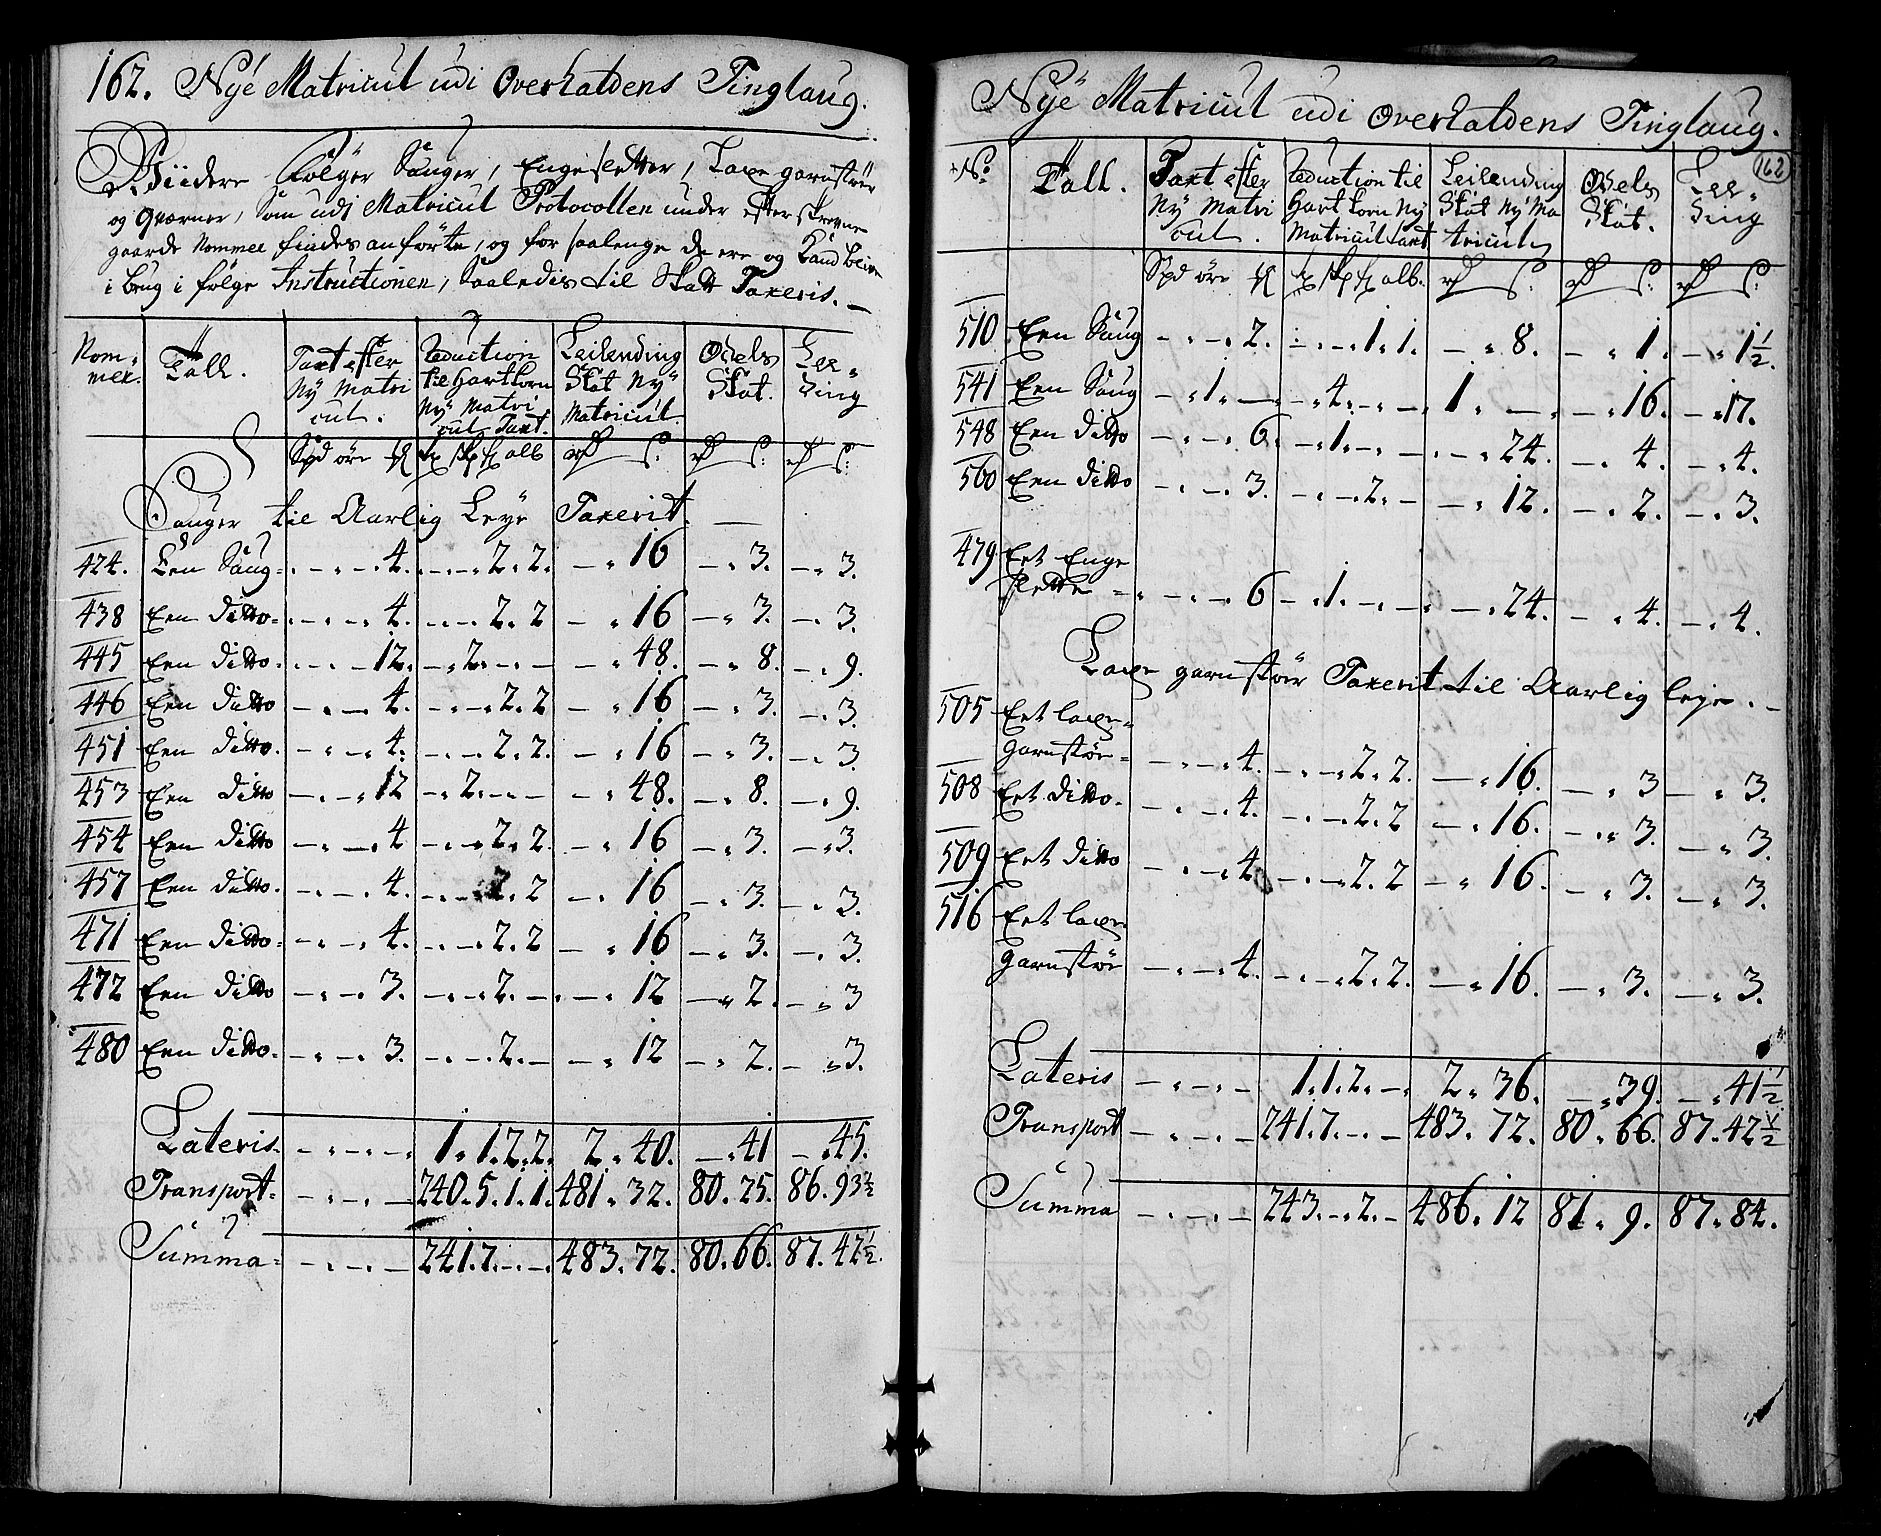 162. Nÿe Matricul udi Overhaldens Tinglaug.
Viidere Følger Sauger, Engesletter, Laxe garnstöer
og Qværner, som udi Matricul Protocollen under efterskrevne
gaarde Nommer findes anförte, og for saalenge de ere og Kand blive
i brug i følge Instructionen, Saaledis til Skatt Taxeris. —
Nom-mer. Tall. Taxt efter Nÿ Matricul. Reduction til Hartkorn Nÿ Matricul Taxt. Leilending Skat Nÿ Matricul. Odels Skat. Lee-ding
Spd öre
alb
Sauger til Aarlig Leye Taxerit. —
424. Een Saug - . - . - . 4. . - . - . 2. 2. — . 16 — . 3. — . 3.
438 Een ditto - . - . - . 4. - . - . 2. 2 — . 16 — . 3. — . 3.
445 Een ditto. - . - . - 12. - . 2. - . — — . 48. — . 8. — . 9.
446 Een ditto — . — . 4. - . - . 2. 2 — . 16 — . 3. — . 3.
451 Een ditto. — . — . 4. - . - . 2. 2. — . 16 — . 3. — . 3.
453 Een ditto — . — . 12 - . 2. - . - — . 48. — . 8. — . 9.
454 Een ditto — . — . 4 - . - . 2. 2. — . 16 — . 3. — . 3.
457 Een ditto. — . — . 4. - . - . 2. 2 — . 16 — . 3. — . 3.
471 Een ditto. — . — . 4. - . - . 2. 2 — . 16 — . 3. — . 3.
472 Een ditto — . — . 3. - . - . 2. - . — . 12 — . 2. — . 3
480 Een ditto. — . — . 3. - . - . 2. - — . 12 — . 2. — . 3.
Lateris. - . - . - . - . 1. 1. 2. 2. 2. 40. — . 41 — . 45.
Transport. - . - . - . — 240. 5. 1. 1. 481. 32. 80. 25. 86. 93 ½
Summa. - . - . - . — 241. 7. - . - . 483. 72. 80. 66. 87. 42 ½.
Nÿe Matricul udi Overhaldens Tinglaug.
162
No. Tall. Taxt efter Nÿ Matricul. Reduction til Hartkorn Nÿ Matricul taxt Leilending Skat Nÿ Matricul Odels Skat. Lee-ding
Spd öre
alb.
510 Een Saug — . — . 2. - . - . 1. 1. — . 8. — . 1. — . 1 ½.
541 Een Saug — . 1. — - . 4. - . — 1. — . — . 16. — . 17.
548 Een ditto — . — . 6. - . 1. - . - . — . 24. — . 4. — . 4.
560 Een ditto — . — . 3. - . - . 2. — — . 12. — . 2. — . 3.
479 Eet Enge
slette — . - . — . 6 - . 1. - . - . — . 24. — . 4. — . 4.
Laxe garnstöer Taxerit til Aarlig leje. —
505 Eet laxe-
garnstöe — . — . 4. - . - . 2. 2. — . 16. — . 3 — . 3.
508 Eet ditto. — . — . 4. - . - . 2. 2 — . 16. — . 3. — . 3.
509 Eet ditto — . — . 4. - . - . 2. 2 — . 16. — . 3. — . 3.
516 Eet laxe
garnstöe — . — . 4. - . - . 2. 2. — . 16. — . 3. — . 3.
Lateris — . - . - . - 1. 1. 2. - . 2. 36. — . 39. — . 41 ½
Transport — . - . - . - 241. 7. - . — 483. 72. 80. 66. 87. 42 ½
Summa — . - . - . — 243. - . 2. - 486. 12 81. 9. 87. 84.